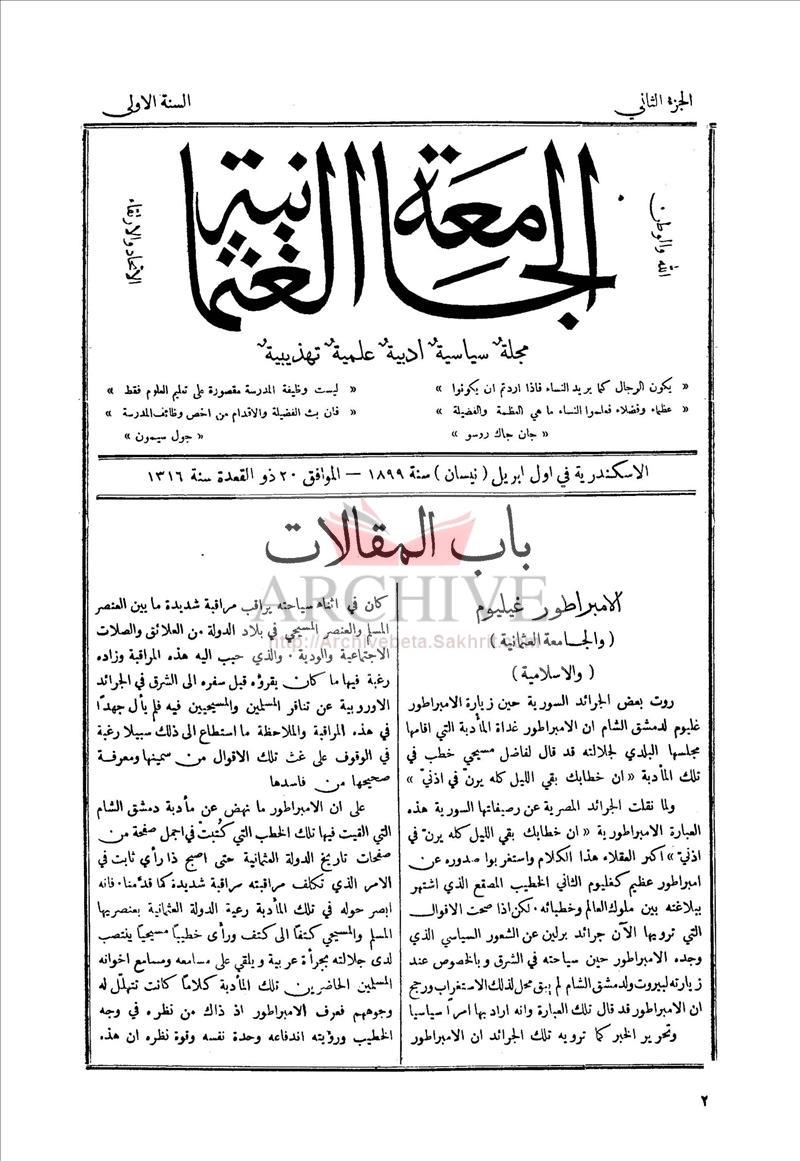 الجزء الثاني
السنة الاولى
الجامعة العثمانية
الله والوطن
الاتحاد والارتقاء
مجلة سياسية ادبية علمية تهذيبية
« يكون الرجال كما يريد النساء فاذا اردتم ان يكونوا »
« عظماء وفضلاء فعلموا النساء ما هي العظمة والفضيلة »
« جان جاك روسو »
« ليست وظيفة المدرسة مقصورة على تعليم العلوم فقط »
« فان بث الفضيلة والاقدام من اخص وظائف المدرسة »
« جول سيمون »
الاسكندرية في اول ابريل ( نيسان ) سنة ١٨٩٩ — الموافق ٢٠ ذو القعدة سنة ١٣١٦
باب المقالات
ARCHIVE
http://Archivebeta.Sakhrit.co
الامبراطور غيليوم
( والجامعة العثمانية )
( والاسلامية )
روت بعض الجرائد السورية حين زيارة الامبراطور
غليوم لدمشق الشام ان الامبراطور غداة المأدبة التي اقامها
مجلسها البلدي لجلالته قد قال لفاضل مسيحي خطب في
تلك المأدبة « ان خطابك بقي الليل كله يرنّ في اذنيّ »
ولما نقلت الجرائد المصرية عن رصيفاتها السورية هذه
العبارة الامبراطورية « ان خطابك بقي الليل كله يرنّ في
اذنيّ » اكبر العقلاء هذا الكلام واستغربوا صدوره عن
امبراطور عظيم كغليوم الثاني الخطيب المصقع الذي اشتهر
ببلاغته بين ملوك العالم وخطبائه ٠ لكن اذا صحت الاقوال
التي ترويها الآن جرائد برلين عن الشعور السياسي الذي
وجده الامبراطور حين سياحته في الشرق وبالخصوص عند
زيارته لبيروت ولدمشق الشام لم يبق محل لذلك الاستغراب ورجح
ان الامبراطور قد قال تلك العبارة وانه اراد بها امرًا سياسيا
وتحرير الخبر كما ترويه تلك الجرائد ان الامبراطور
كان في اثناء سياحته يراقب مراقبة شديدة ما بين العنصر
المسلم والعنصر المسيحي في بلاد الدولة من العلائق والصلات
الاجتماعية والودية ٠ والذي حبب اليه هذه المراقبة وزاده
رغبة فيها ما كان يقرؤه قبل سفره الى الشرق في الجرائد
الاوروبية عن تنافر المسلمين والمسيحيين فيه فلم يأل جهدًا
في هذه المراقبة والملاحظة ما استطاع الى ذلك سبيلا رغبة
في الوقوف على غث تلك الاقوال من سمينها ومعرفة
صحيحها من فاسدها
على ان الامبراطور ما نهض عن مأدبة دمشق الشام
التي القيت فيها تلك الخطب التي كُتبت في اجمل صفحة من
صفحات تاريخ الدولة العثمانية حتى اصبح ذا رأي ثابت في
الامر الذي تكلف مراقبته مراقبة شديدة كما قدّمنا ٠ فانه
ابصر حوله في تلك المأدبة رعية الدولة العثمانية بعنصريها
المسلم والمسيحي كتفًا الى كتف ورأى خطيبًا مسيحيًا ينتصب
لدى جلالته بجرأة عربية ويلقي على مسامعه ومسامع اخوانه
المسلمين الحاضرين تلك المأدبة كلامًا كانت تتهلّل له
وجوههم فعرف الامبراطور اذ ذاك من نظره في وجه
الخطيب ورؤيته اندفاعه وحدة نفسه وقوة نظره ان هذه
٢